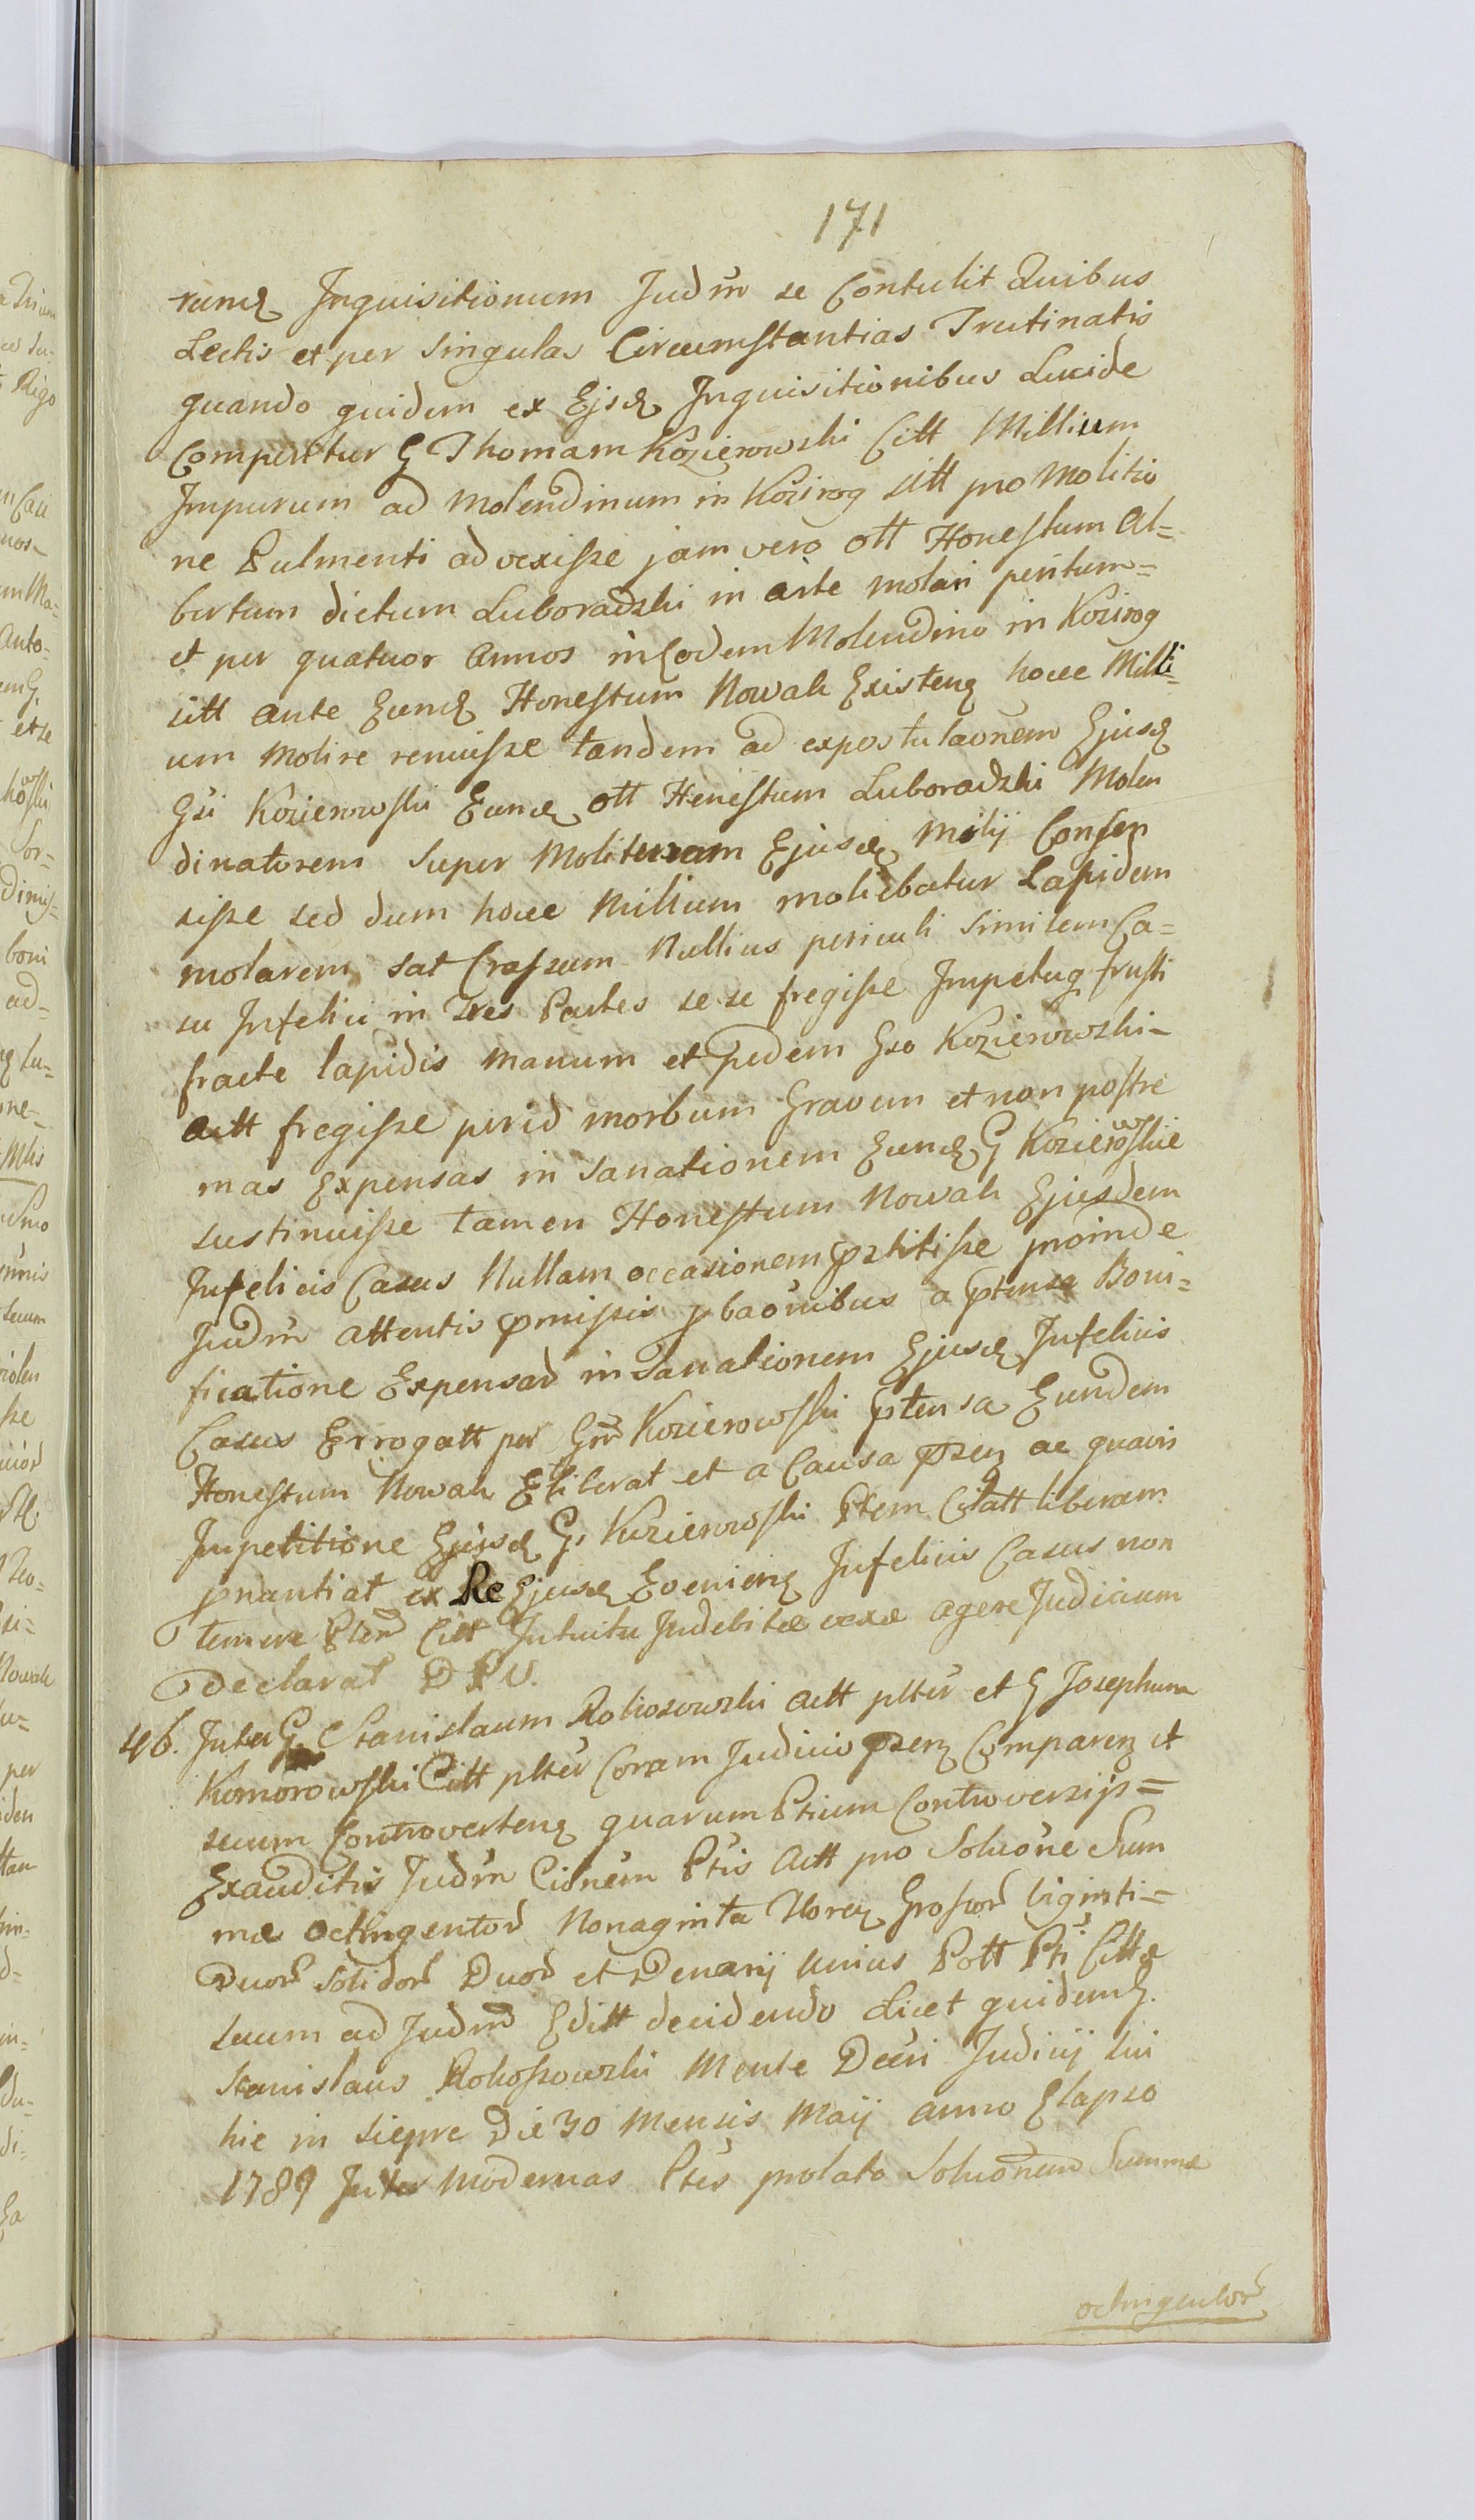 171
rumq Inquisitionum Judm se Contulit Quibus
Lectis et per singulas Circumstantias Trutinatis
quando quidem ex Ejsd Inquisitionibus Lucide
Comperitur G Thomam Kozierowski Citt Millium
Impurum ad Molendinum in Kozirog sitt pro Molitio
ne Pulmenti advexisse jam vero ott Honestum Al=
bertum dictum Luboradzki in arte molari peritum=
et per quatuor annos in Eodem Molendino in Kozirog
sitt ante Eund Honestum Nowak Existen hocce Milli=
um Molire renuisse tandem ad expostulaonem Ejusd
Gsi Kozierowski Eund ott Henestum Luboradzki Molen
dinatorem super Molituram Ejusd Milij Consen
sisse sed dum hocce Millium moliebatur Lapidem
molarem sat Crassum Nullius periculi similem Ca=
su Infelici in tres Partes se se fregisse Impetuq frusti
fracte lapidis manum et pedem Gso Kozierowski-
actt fregisse perid morbum Gravem et non postre
mas Expensas in sanationem Eund G Kozierowskie
sustinuisse tamen Honestum Nowak Ejusdem
Infelicis Casus Nullam occasionem pstitisse proinde
Judm attentis pmissis pbaonibus a ptensa Boni=
ficatione Expensar in Sanationem Ejusd Infelicis
Casus Errogatt per Gm Kozierowski ptensa Eundem
Honestum Nowak Eliberat et a Causa psen ac quavis
Impetitione Ejusd G. Kozierowski Ptem Citatt liberam
pnantiat ex Re Ejusd Evenien Infelicis Casus non
temere Ptem Citt Intuitu Indebitæ vexæ agere Judicium
declarat D P V.
46. Inter G. Stanislaum Rokosowski actt plter et G Josephum
Komorowski Citt plter Coram Judicio psen Comparen et
secum Controverten quarum Ptium Controversijs=
Exauditis Judm Cionem Ptis Actt pro Soluone Sum
mæ octingentor Nonaginta floren Grossor Viginti=
Duor Solidor Duor et Denarij Unius Pott Pti Cittæ
suum ad Judm Editt decidendo Licet quidem G.
Stanislaus Rokossowski Mente Decri Judicij sui
hic in Siepre Die 30 Mensis Maij anno Elapso
1789 Inter Modernas Ptes prolato Soluonem Summæ
octingentor